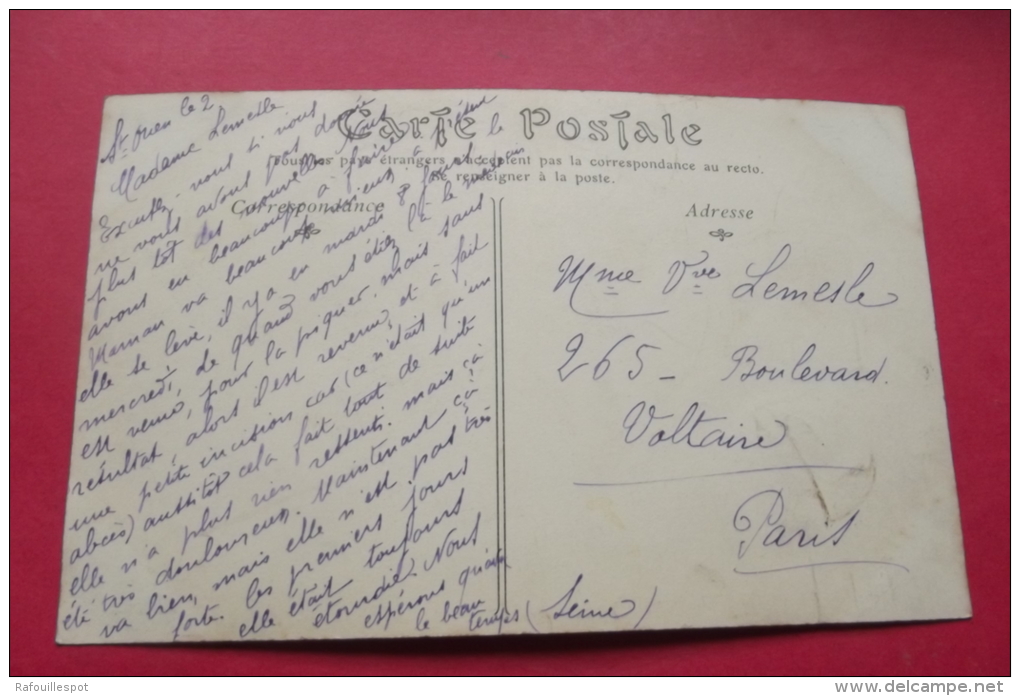 St Ouen le 2
Madame Lemesle
Excusez-vous si nous
ne vous avons pas donné
plus tôt des nouvelles Nous
avons eu beaucoup à faire.
Maman va beaucoup mieux à présent
elle se lève, il y a eu mardi 8 jours le
mercredi, de quand vous étiez là le médecin
est venu, pour la piquer. mais sans
résultat, alors il est revenu, et a fait
une petite incision car (ce n'était qu'un
abcès) aussitôt cela fait tout de suite
elle n'a plus rien ressenti. mais ça a
été très douloureux. Maintenant ça
va bien, mais elle n'est pas très
forte. les premiers jours
elle était toujours
étourdie. Nous
espérons qu'avec
le beau
temps
Carte Postale
Tous les pays étrangers n'acceptent pas la correspondance au recto.
Se renseigner à la poste.
Correspondance
Adresse
Mme Vve Lemesle
265 - Boulevard
Voltaire
Paris
(Seine)
Rafouillespot
www.delcampe.net